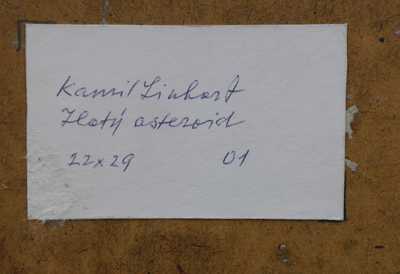 Kamil Linhart
Zlatý asteroid
22x29 01